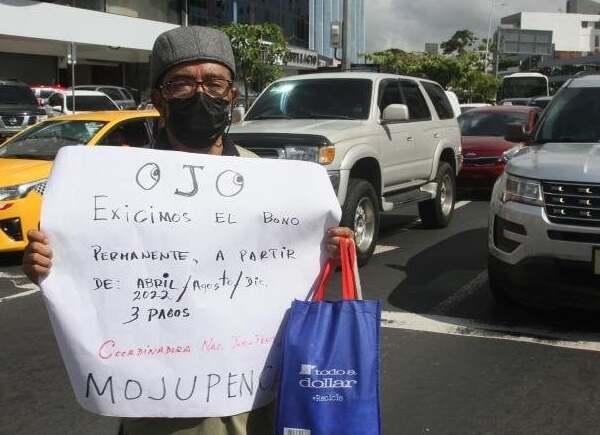 OJO
EXIGIMOS EL BONO
PERMANENTE, A PARTIR
DE: ABRIL/AGOSTO/DIC.
2022
3 PAGOS
COORDINADORA NAC.
MOJUPENC
todo a
dollar
+Recicle